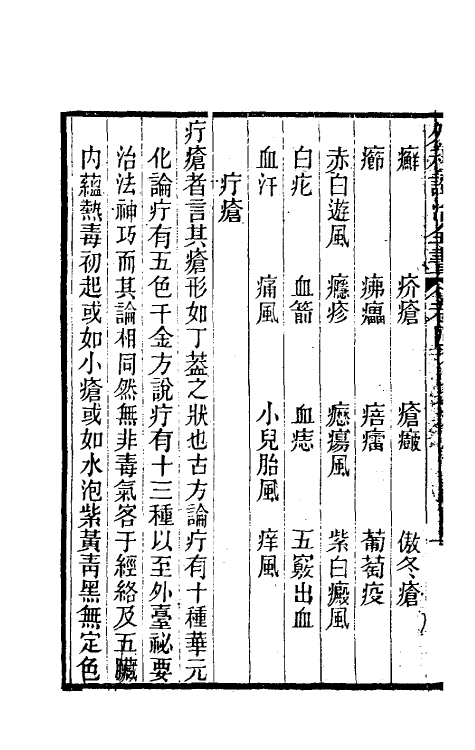 癬　疥瘡　瘡癥　傲冬瘡
癤　痱㿈　痦㿔　葡萄疫
赤白遊風　癮疹　癧瘍風　紫白癜風
白疕　血箭　血痣　五竅出血
血汗　痛風　小兒胎風　痒風
疔瘡
疔瘡者言其瘡形如丁葢之狀也古方論疔有十種華元
化論疔有五色千金方說疔有十三種以至外臺祕要
治法神巧而其論相同然無非毒氣客于經絡及五臟
內蘊熱毒初起或如小瘡或如水泡紫黃靑黑無定色